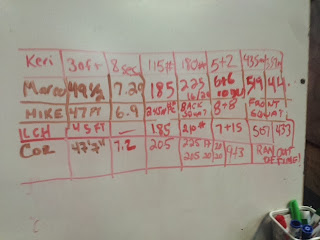 Keri 30ft 8sec 115# 5+2
Marco 49½ 7.20 185 225 6+6 519 44
MIKE 47FT 6.9 BACK SQUAT 8+8 FRONT SQUAT
LCH 45FT — 185 210# 7+15 507 433
COR 47'7" 7.2 205 225 205 9+3 RAN OUT OF TIME!